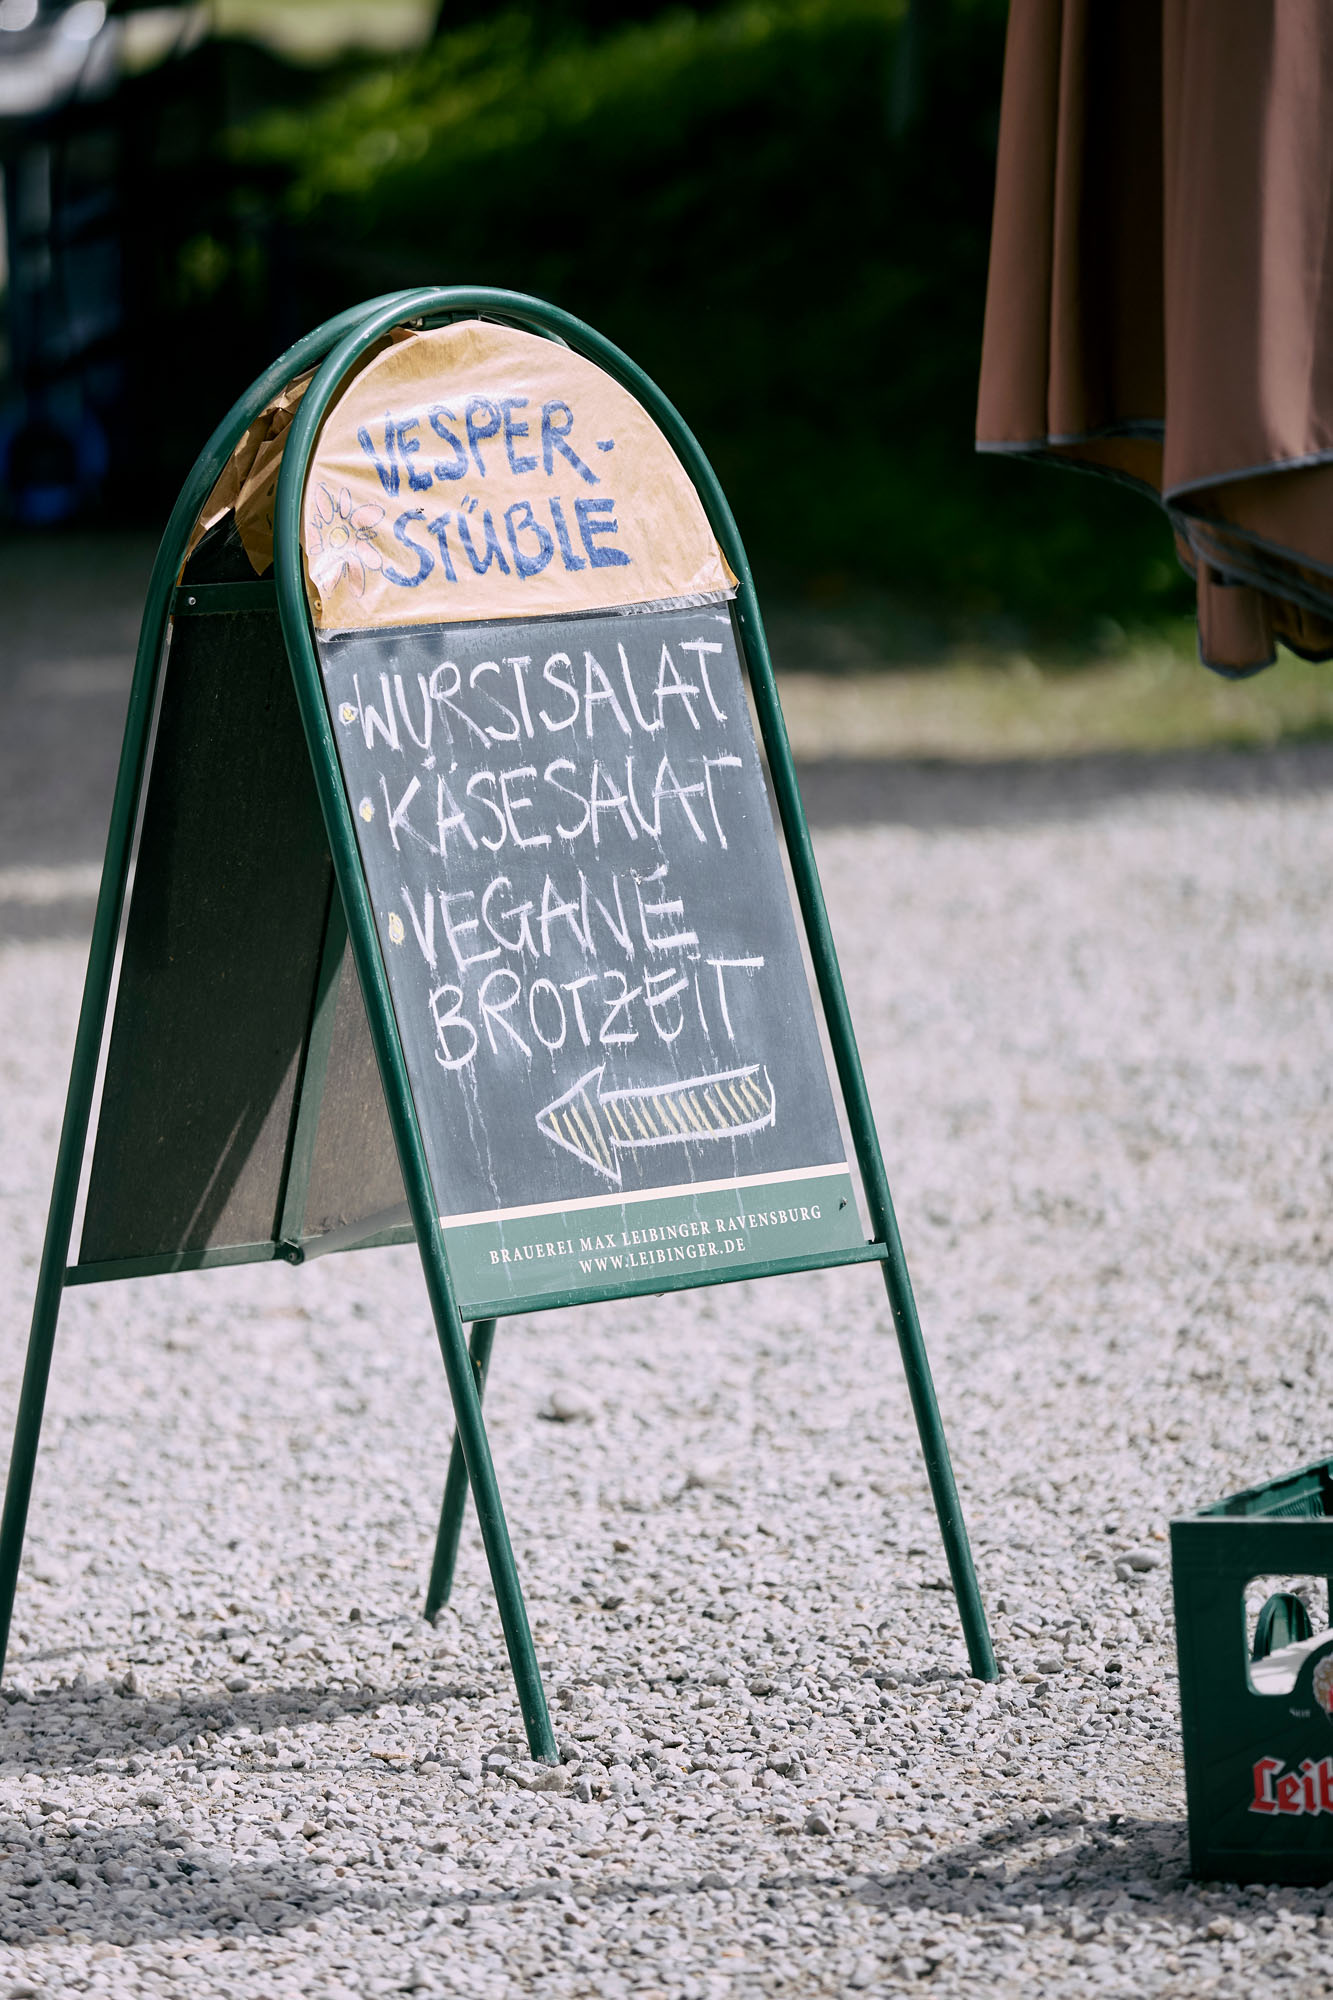 VESPER-
STÜBLE
WURSTSALAT
KÄSESALAT
VEGANE
BROTZEIT
BRAUEREI MAX LEIBINGER RAVENSBURG
WWW.LEIBINGER.DE
Leib